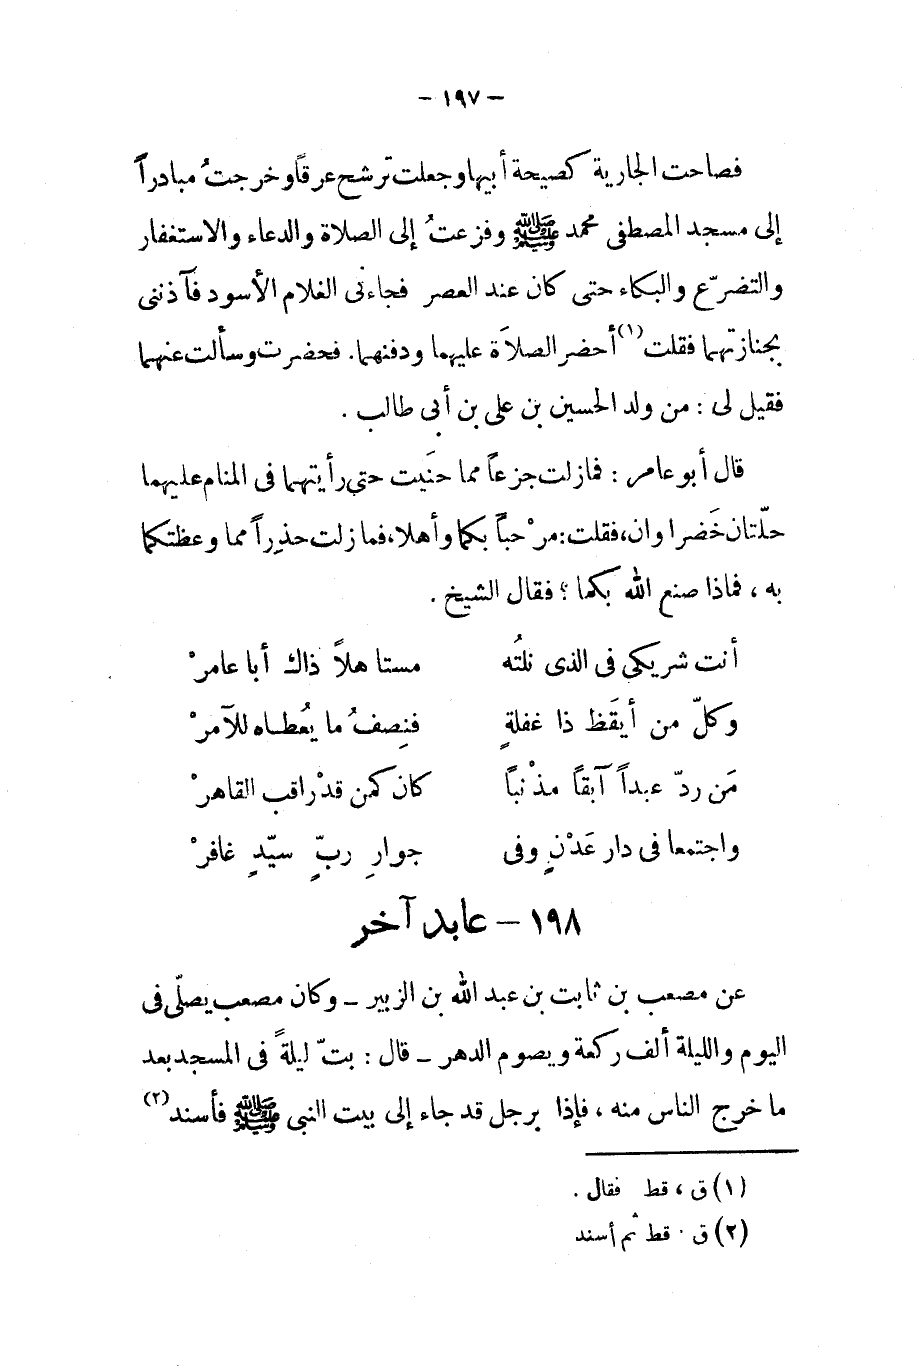 - ١٩٧ -
فصاحت الجارية كصيحة أبيها وجعلت ترشح عرقاً وخرجتُ مبادراً
إلى مسجد المصطفى محمد ﷺ وفزعتُ إلى الصلاة والدعاء والاستغفار
والتضرّع والبكاء حتى كان عند العصر فجاءنى الغلام الأسود فآذننى
بجنازتهما فقلت (١) أحضر الصلاَة عليهما ودفنهما. فحضرت وسألت عنهما
فقيل لى : من ولد الحسين بن على بن أبى طالب .
قال أبو عامر : فمازلت جزعاً مما جنَيت حتى رأيتهما فى المنام عليهما
حلّتان خَضراوان، فقلت: مرْحباً بكما وأهلا، فمازلت حذِراً مما وعظتكما
به ، فماذا صنع الله بكما ؟ فقال الشيخ .
أنت شريكى فى الذى نلتُه مستاهلاً ذاك أبا عامرْ
وكلّ من أيقَظ ذا غفلةٍ فنِصفُ ما يعُطاه للآمرْ
مَن ردّ عبداً آبقاً مذْنباً كان كمن قدْ راقب القاهرْ
واجتمعا فى دار عَدْنٍ وفى جوارِ ربٍّ سيّدٍ غافرْ
١٩٨ - عابد آخر
عن مصعب بن ثابت بن عبد الله بن الزبير - وكان مصعب يصلّى فى
اليوم والليلة ألف ركعة ويصوم الدهر - قال : بتّ ليلةً فى المسجد بعد
ما خرج الناس منه ، فإذا برجل قد جاء إلى بيت النبى ﷺ فأسند (٢)
(١) ق ، قط فقال .
(٢) ق . قط ثم أسند